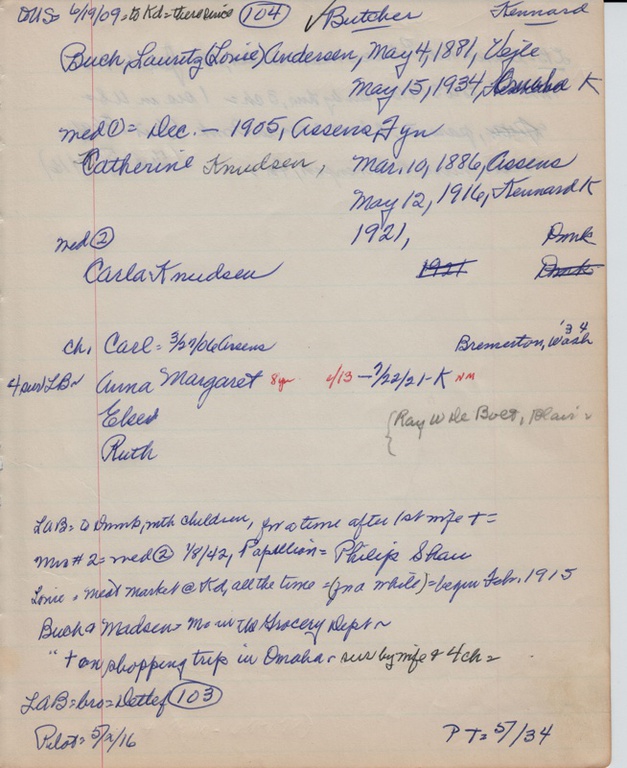 to US= 6/19/09= to Kd= there since (104) ✓Butcher Kennard
Buch, Lauritz (Louie) Andersen, May 4, 1881, Vejle
May 15, 1934, Omaha K
med ① = Dec. - 1905, Assens, Fyn
Catherine Knudsen, Mar. 10, 1886, Assens
May 12, 1916, Kennard K
med ② 1921, Dmnk
Carla Knudsen 1921 Dmnk
ch. Carl = 3/27/06 Assens Bremerton, Wash '34
4 surv LB~ Anna Margaret 8yr 6/13 - 7/22/21 - K NM
Ruth {Ray W De Boer, Blair
LAB= to Dmnk, with children, for a time after 1st wife +=
Mrs #2= med ② 1/8/42, Papillion= Philip Shaw
Louie = meat market @ Kd, all the time = (for a while) = began Feb. 1915
Buch & Madsen= M in the Grocery Dept ~
" + on shopping trip in Omaha - surv by wife & 4 ch=
LAB= bro= Detlef (103)
Pilot= 5/2/16 P T= 5/ /34